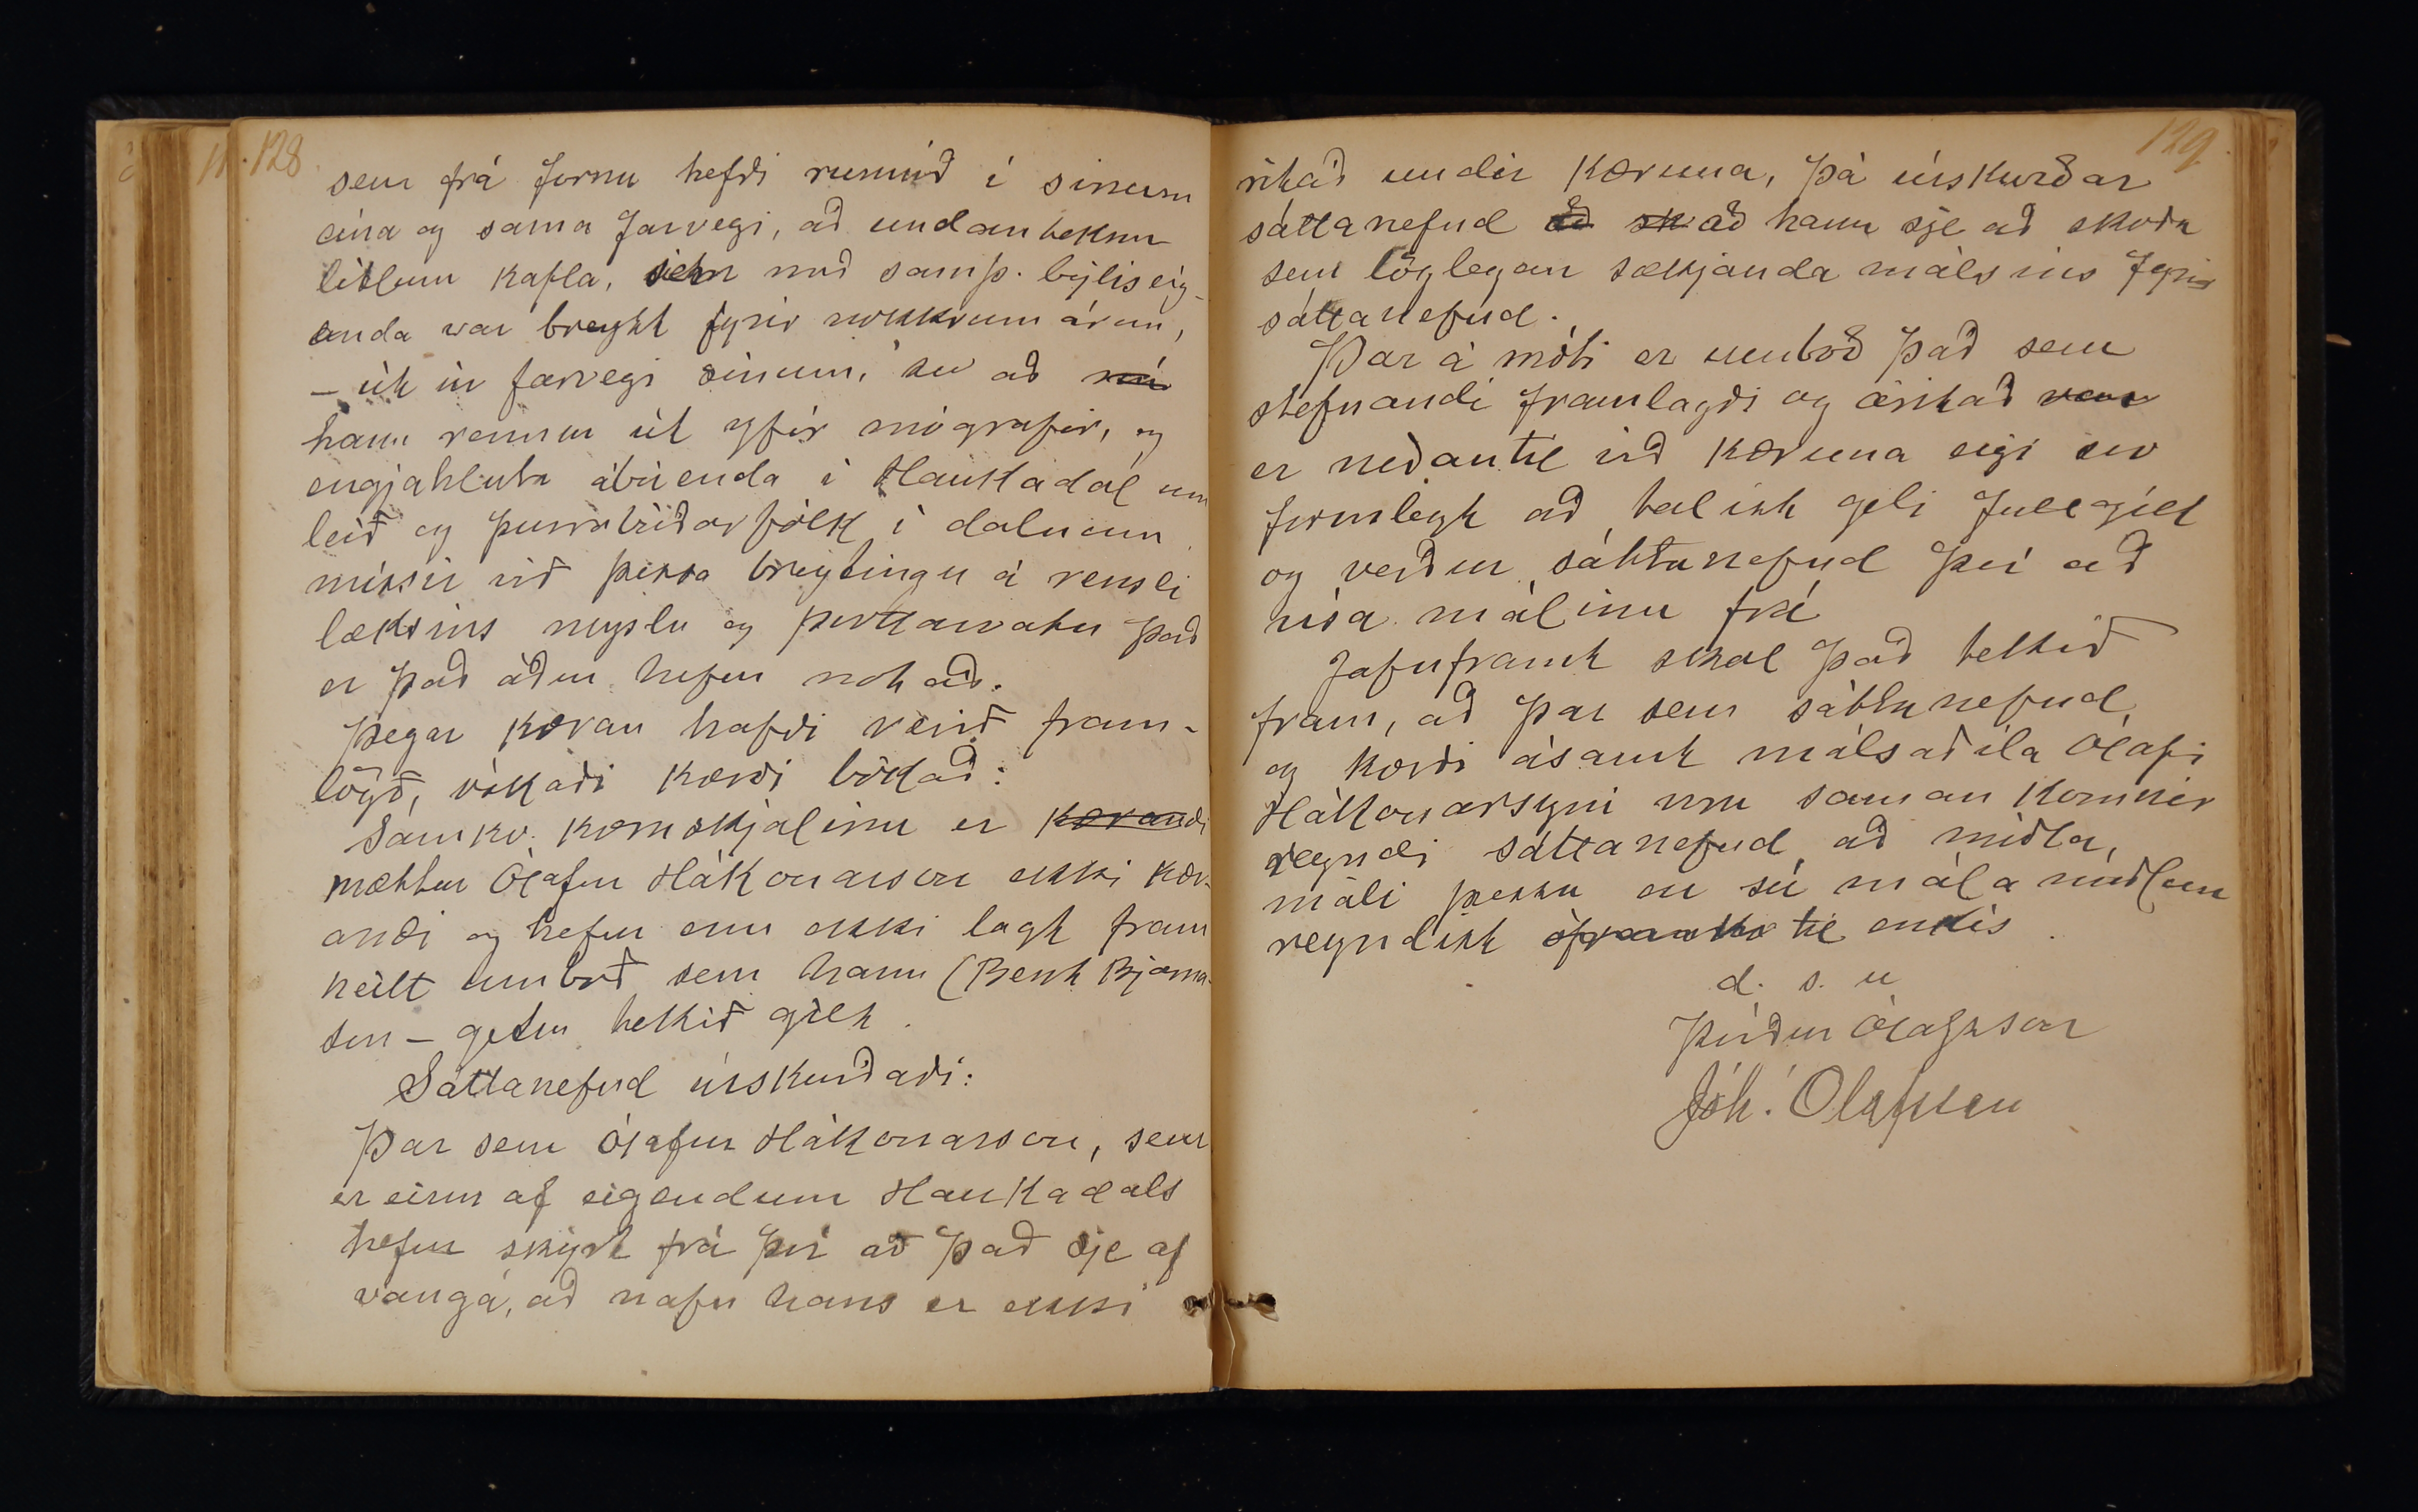 128
sem frá fornu hefði runnið í sínum
eina og sama farvegi, að undanteknum
litlum kafla, sem með samþ. býliseig-
anda var breytt fyrir nokkrum árum,
- út úr farvegi sínum, svo að nú
hann rennur út yfir mógrafir, og
engjahluta ábúenda í Haukadal um
leið og þurrabúðarfólk í dalnum
missir við þessa breytingu á rensli
læksins neyslu og þvottavatn það
er það áður hefur notað.
Þegar kæran hafði verið fram-
lögð, óskaði kærði bókað:
Samkv. kæruskjalinu er kærandi
mættur Ólafur Hákonarson ekki kær-
andi og hefur enn ekki lagt fram
heilt umboð sem hann (Bent Bjarna-
son - getur tekið gilt.
Sáttanefnd úrskurðaði:
Þar sem Ólafur Hákonarson, sem
er einn af eigendum Haukadals
hefur skýrt frá því að það sje af
vangá, að nafn hans er ekki
129
ritað undir kæruna, þá úrskurðar
sáttanefnd að sk að hann sje að skoða
sem löglegan sækjanda málsins fyrir
sáttanefnd.
Þar á móti er umboð það sem
stefnandi framlagði og áritað var
er neðantil við kæruna eigi svo
formlegt að talist geti fullgilt
og verður sáttanefnd því að
vísa málinu frá
Jafnframt skal það tekið
fram, að þar sem sáttanefnd,
og kærði ásamt málsaðila Ólafi
Hákonarsyni voru saman komnir
reyndi sáttanefnd að miðla,
máli þessu en sú málamiðlun
reyndist til einkis.
d. s. u
Þórður Ólafsson
Jóh. Ólafsson